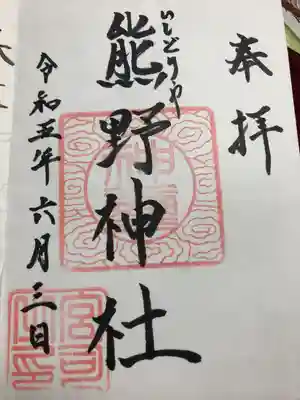 奉拝
いしどうや
熊野神社
令和五年六月三日